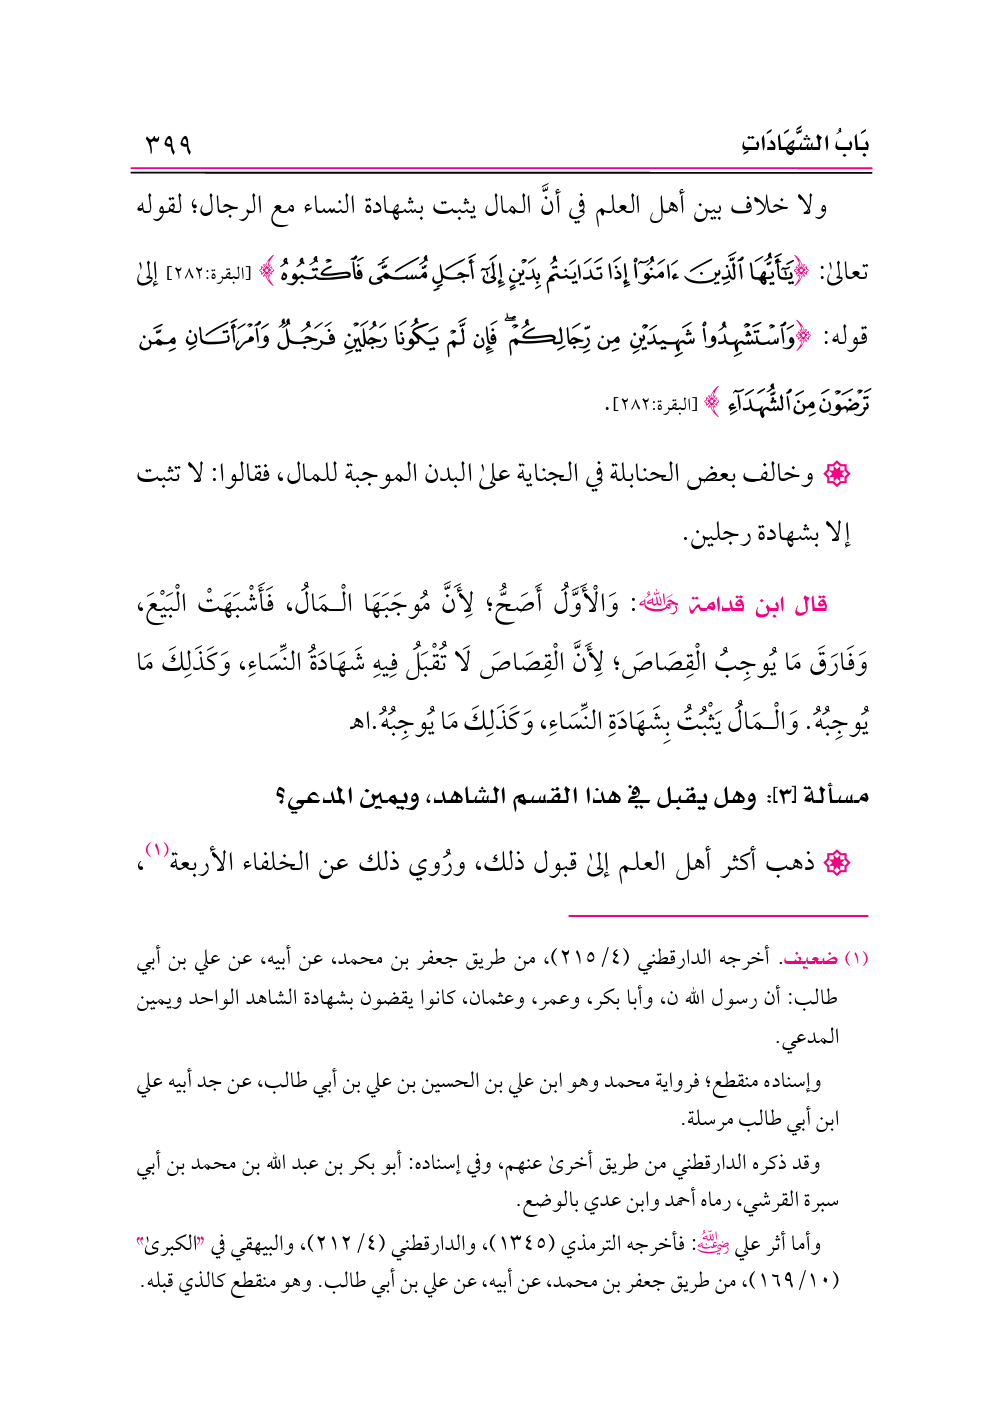 بَابُ الشَّهَادَاتِ ٣٩٩
ولا خلاف بين أهل العلم في أنَّ المال يثبت بشهادة النساء مع الرجال؛ لقوله
تعالىٰ: ﴿يَٰٓأَيُّهَا ٱلَّذِينَ ءَامَنُوٓا۟ إِذَا تَدَايَنتُم بِدَيْنٍ إِلَىٰٓ أَجَلٍ مُّسَمًّى فَٱكْتُبُوهُ﴾ [البقرة:٢٨٢] إلىٰ
قوله: ﴿وَٱسْتَشْهِدُوا۟ شَهِيدَيْنِ مِن رِّجَالِكُمْ ۖ فَإِن لَّمْ يَكُونَا رَجُلَيْنِ فَرَجُلٌ وَٱمْرَأَتَانِ مِمَّن
تَرْضَوْنَ مِنَ ٱلشُّهَدَآءِ﴾ [البقرة:٢٨٢].
۞ وخالف بعض الحنابلة في الجناية علىٰ البدن الموجبة للمال، فقالوا: لا تثبت
إلا بشهادة رجلين.
قال ابن قدامة رحمه الله: وَالْأَوَّلُ أَصَحُّ؛ لِأَنَّ مُوجَبَهَا الْـمَالُ، فَأَشْبَهَتْ الْبَيْعَ،
وَفَارَقَ مَا يُوجِبُ الْقِصَاصَ؛ لِأَنَّ الْقِصَاصَ لَا تُقْبَلُ فِيهِ شَهَادَةُ النِّسَاءِ، وَكَذَلِكَ مَا
يُوجِبُهُ. وَالْـمَالُ يَثْبُتُ بِشَهَادَةِ النِّسَاءِ، وَكَذَلِكَ مَا يُوجِبُهُ.اهـ
مسألة [٣]: وهل يقبل في هذا القسم الشاهد، ويمين المدعي؟
۞ ذهب أكثر أهل العلم إلىٰ قبول ذلك، ورُوي ذلك عن الخلفاء الأربعة(١)،
(١) ضعيف. أخرجه الدارقطني (٤/ ٢١٥)، من طريق جعفر بن محمد، عن أبيه، عن علي بن أبي
طالب: أن رسول الله ن، وأبا بكر، وعمر، وعثمان، كانوا يقضون بشهادة الشاهد الواحد ويمين
المدعي.
وإسناده منقطع؛ فرواية محمد وهو ابن علي بن الحسين بن علي بن أبي طالب، عن جد أبيه علي
ابن أبي طالب مرسلة.
وقد ذكره الدارقطني من طريق أخرىٰ عنهم، وفي إسناده: أبو بكر بن عبد الله بن محمد بن أبي
سبرة القرشي، رماه أحمد وابن عدي بالوضع.
وأما أثر علي رضي الله عنه: فأخرجه الترمذي (١٣٤٥)، والدارقطني (٤/ ٢١٢)، والبيهقي في "الكبرىٰ"
(١٠/ ١٦٩)، من طريق جعفر بن محمد، عن أبيه، عن علي بن أبي طالب. وهو منقطع كالذي قبله.